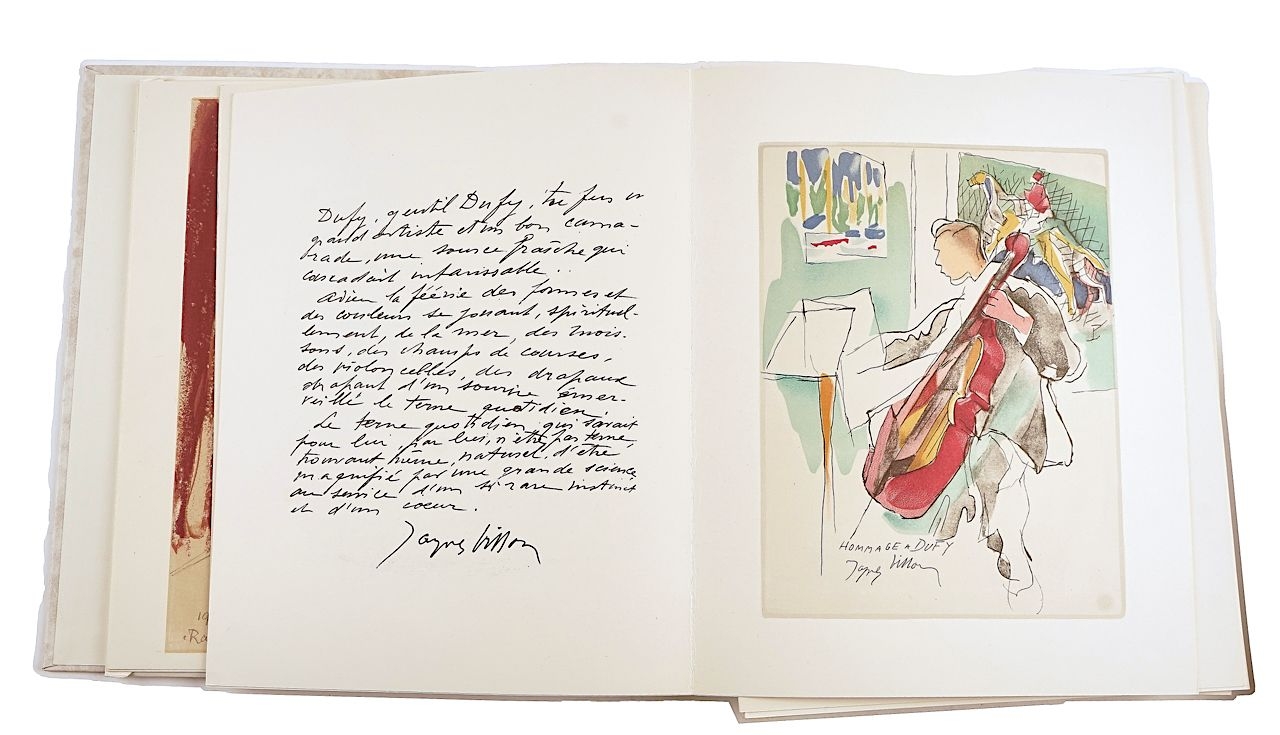 Dufy, gentil Dufy, tu fus un
grand artiste et un bon cama-
rade, une source fraîche qui
cascadait intarissable..
Adieu la féérie des formes et
des couleurs se jouant, spirituel-
lement, de la mer, des mois-
sons, des champs de courses,
des violoncelles, des drapeaux
drapant d'un sourire émer-
veillé le terne quotidien.
Le terne quotidien qui savait
pour lui, par lui, n'être pas terne,
trouvant même, naturel, d'être
magnifié par une grande science
au service d'un si rare instinct
et d'un coeur.
Jacques Villon
HOMMAGE A DUFY
Jacques Villon
19
Ra